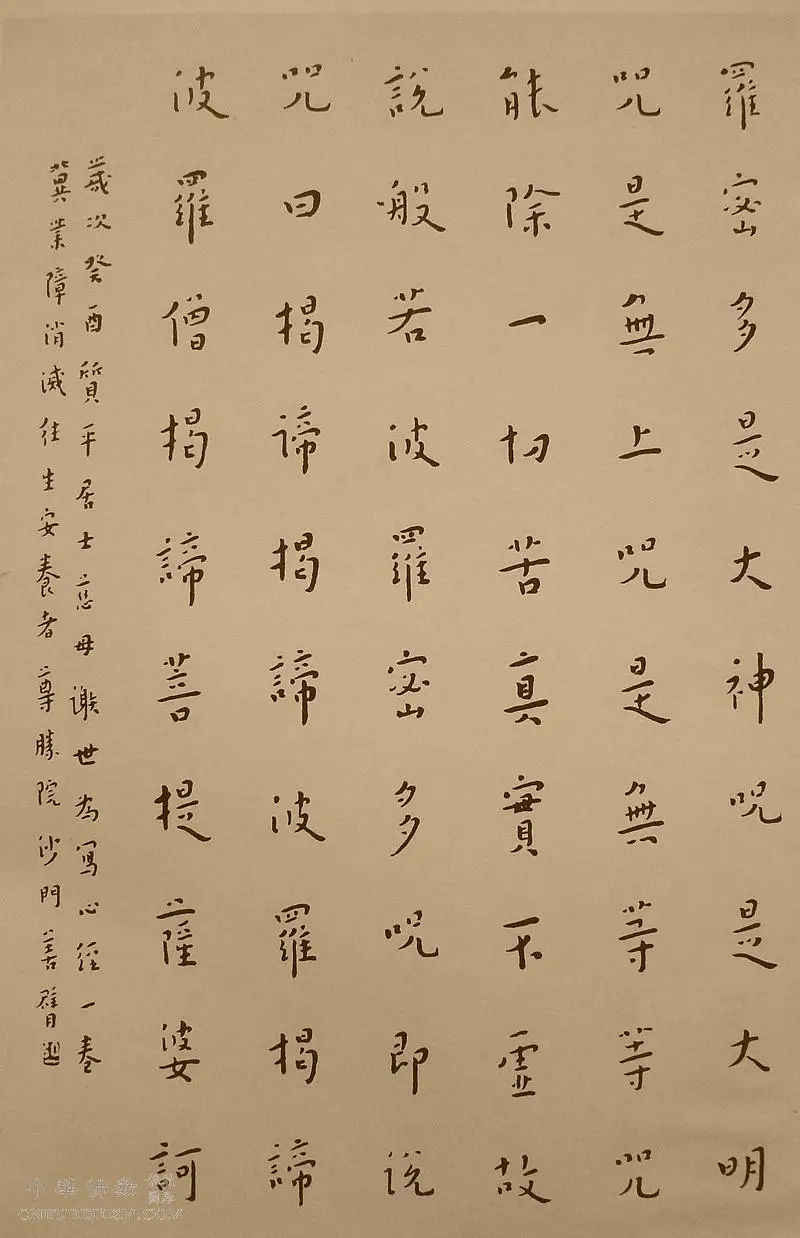 羅密多是大神呪是大明
咒是無上咒是無等等咒
能除一切苦真實不虛故
說般若波羅密多呪即説
咒曰揭諦揭諦波羅揭諦
波羅僧揭諦菩提薩婆訶
歲次癸酉質平居士慈母謝世為寫心經一卷
冀業障消滅往生安養者尊勝院沙門善臂
中華佛教
CNBUDDHISM.COM